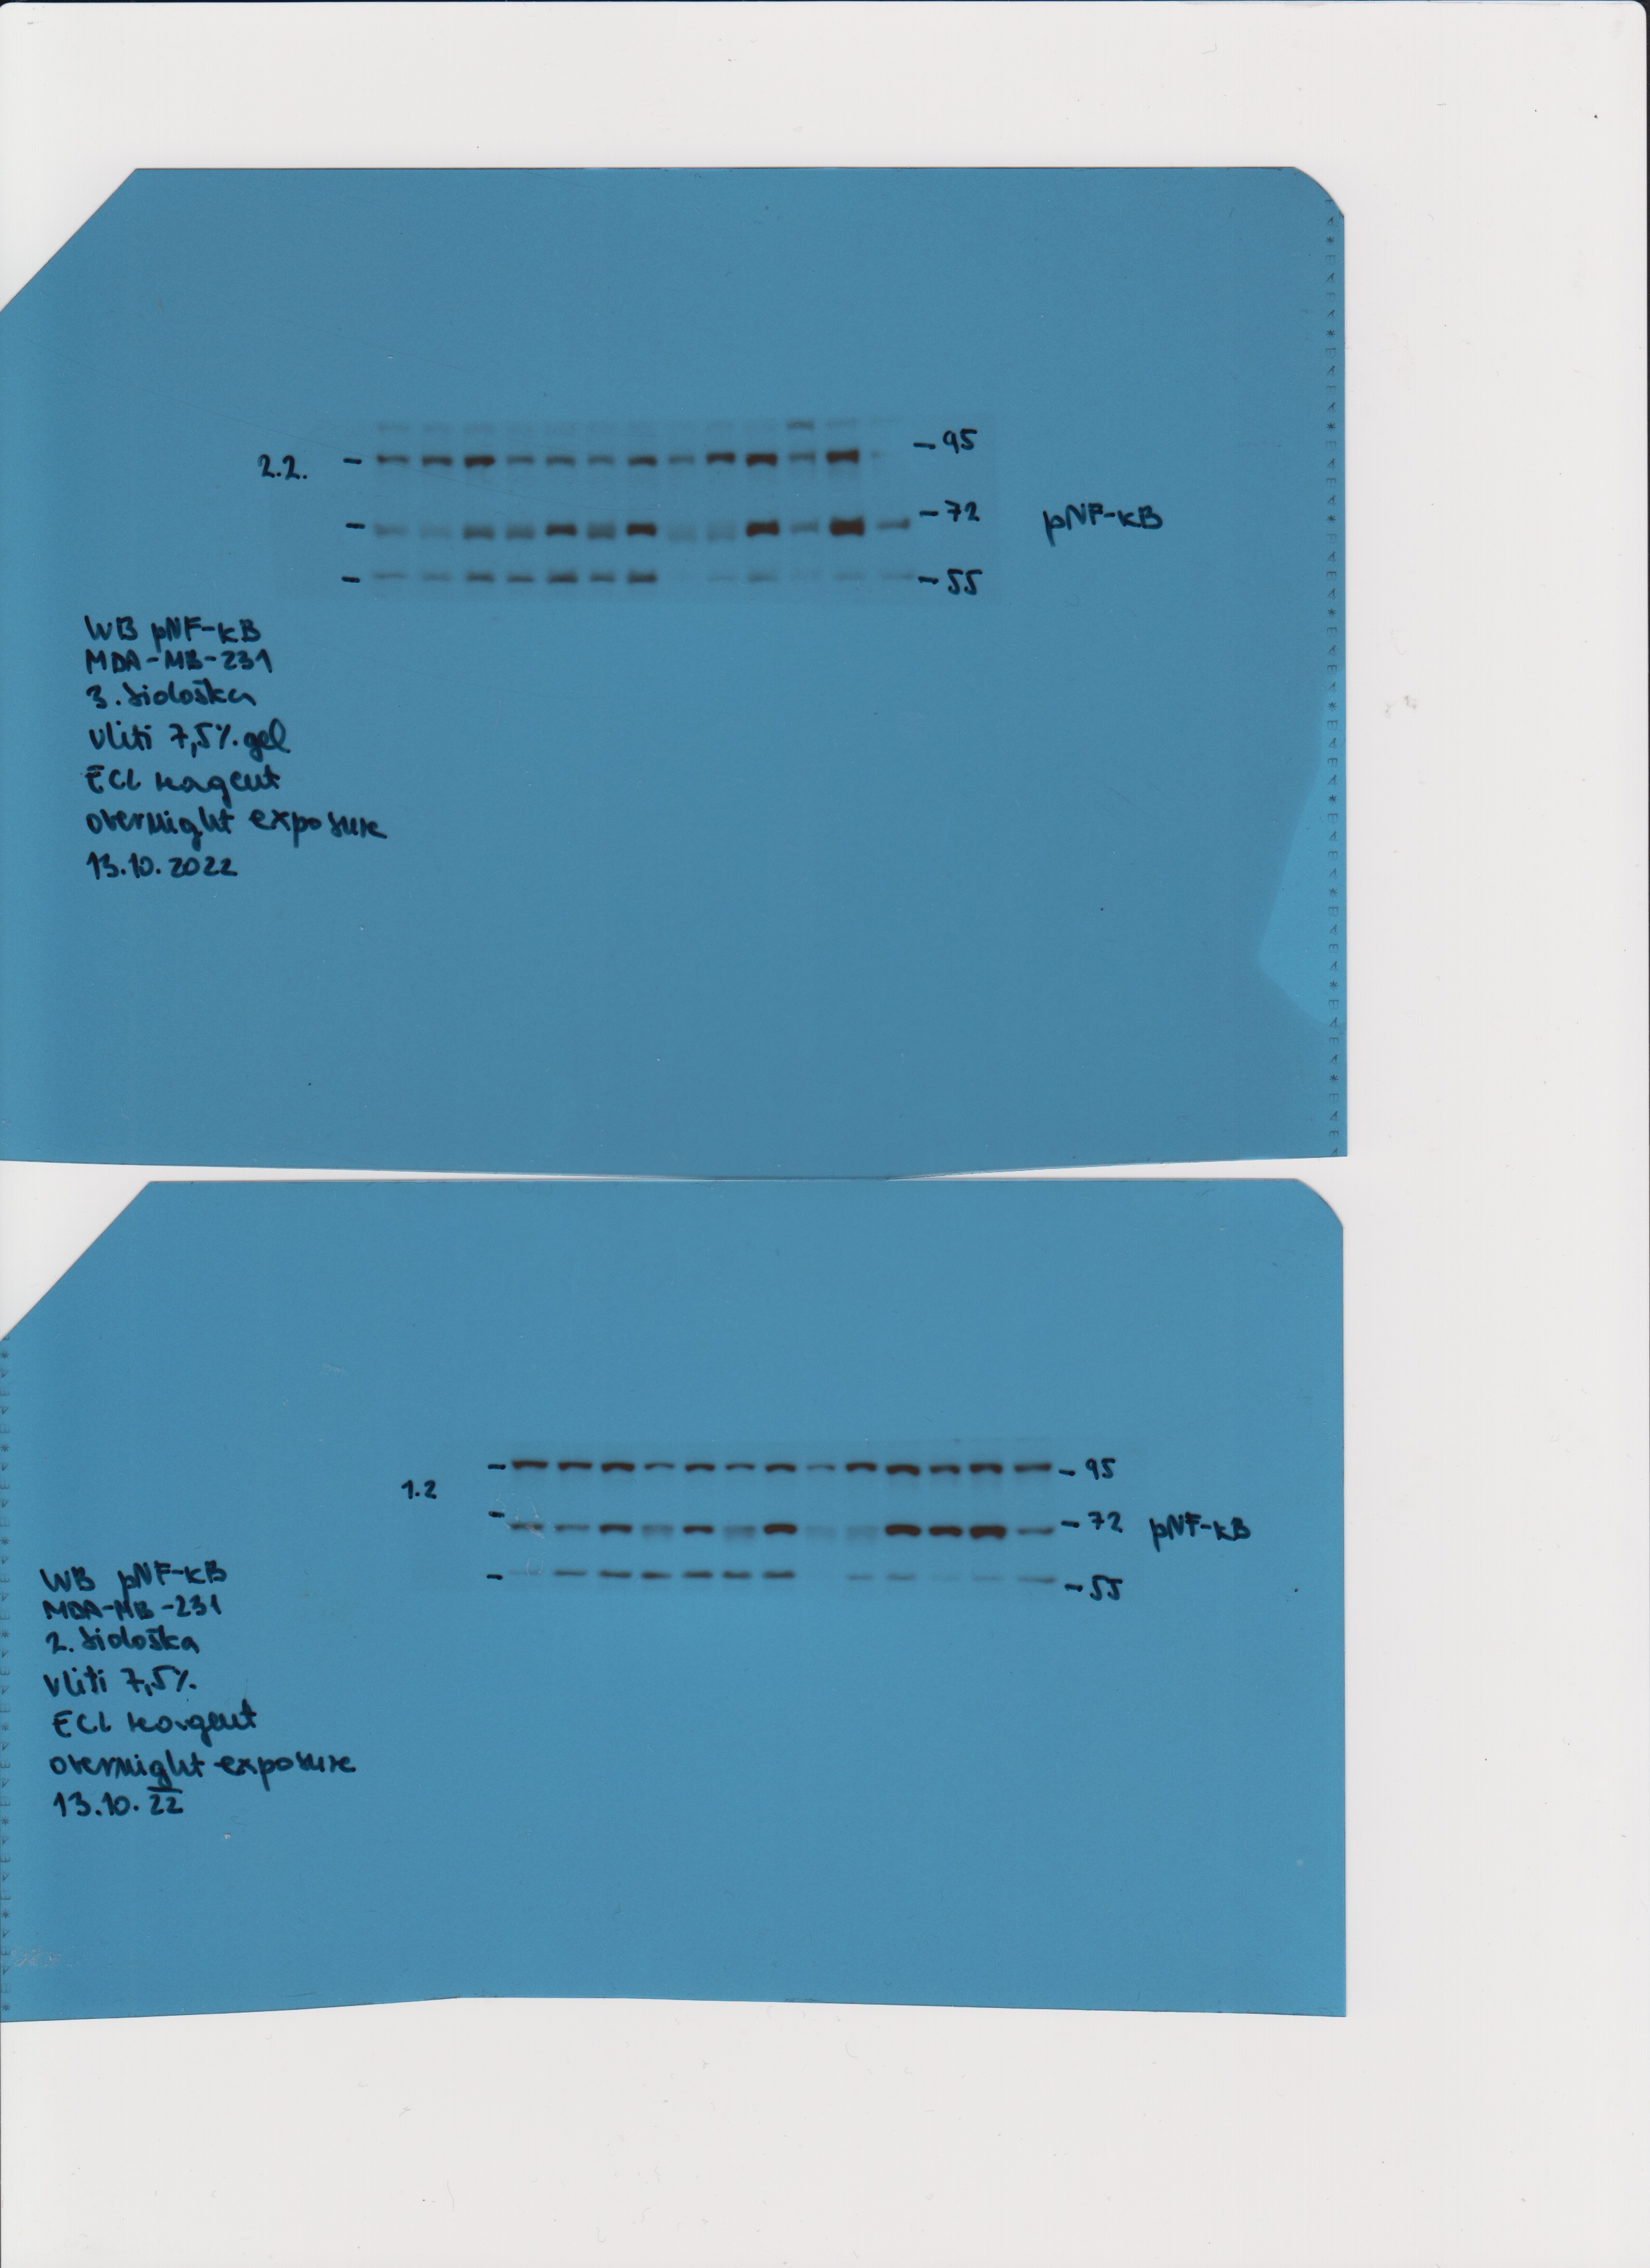 2.2.
95
72
55
pNF-κB
WB pNF-κB
MDA-MB-231
3.
vliti 7,5% gel
ECL reagent
overnight exposure
13.10.2022
1.2
95
72
pNF-κB
55
WB pNF-κB
MDA-MB-231
2.
vliti 7,5%
ECL reagent
overnight exposure
13.10.22